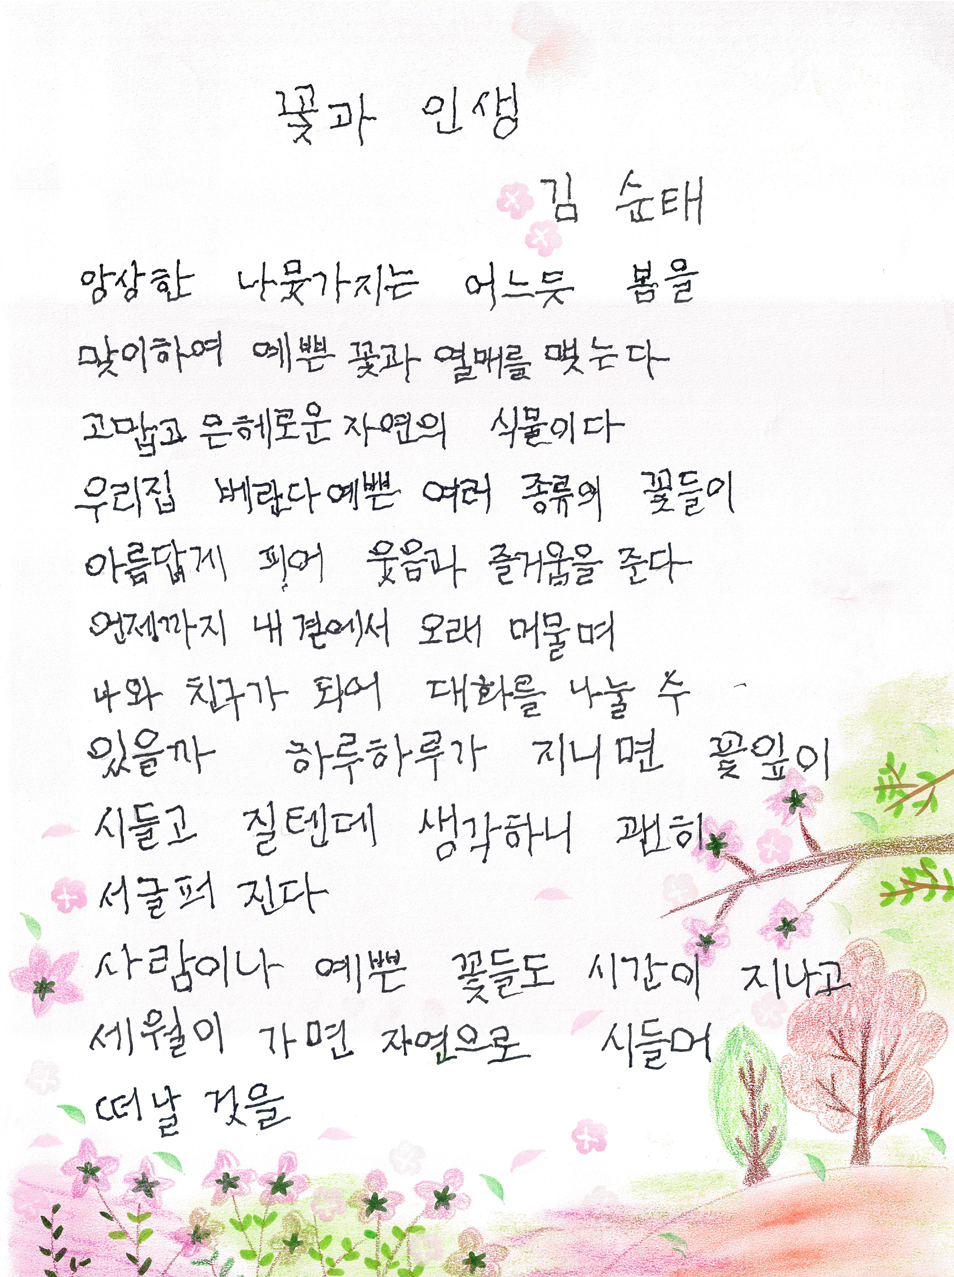 꽃과 인생
김 순태
앙상한 나뭇가지는 어느듯 봄을
맞이하여 예쁜 꽃과 열매를 맺는다
고맙고 은혜로운 자연의 식물이다
우리집 베란다 예쁜 여러 종류의 꽃들이
아름답게 피어 웃음과 즐거움을 준다
언제까지 내 곁에서 오래 머물며
나와 친구가 되어 대화를 나눌 수
있을까 하루하루가 지나면 꽃잎이
시들고 질텐데 생각하니 괜히
서글퍼 진다
사람이나 예쁜 꽃들도 시간이 지나고
세월이 가면 자연으로 시들어
떠날 것을